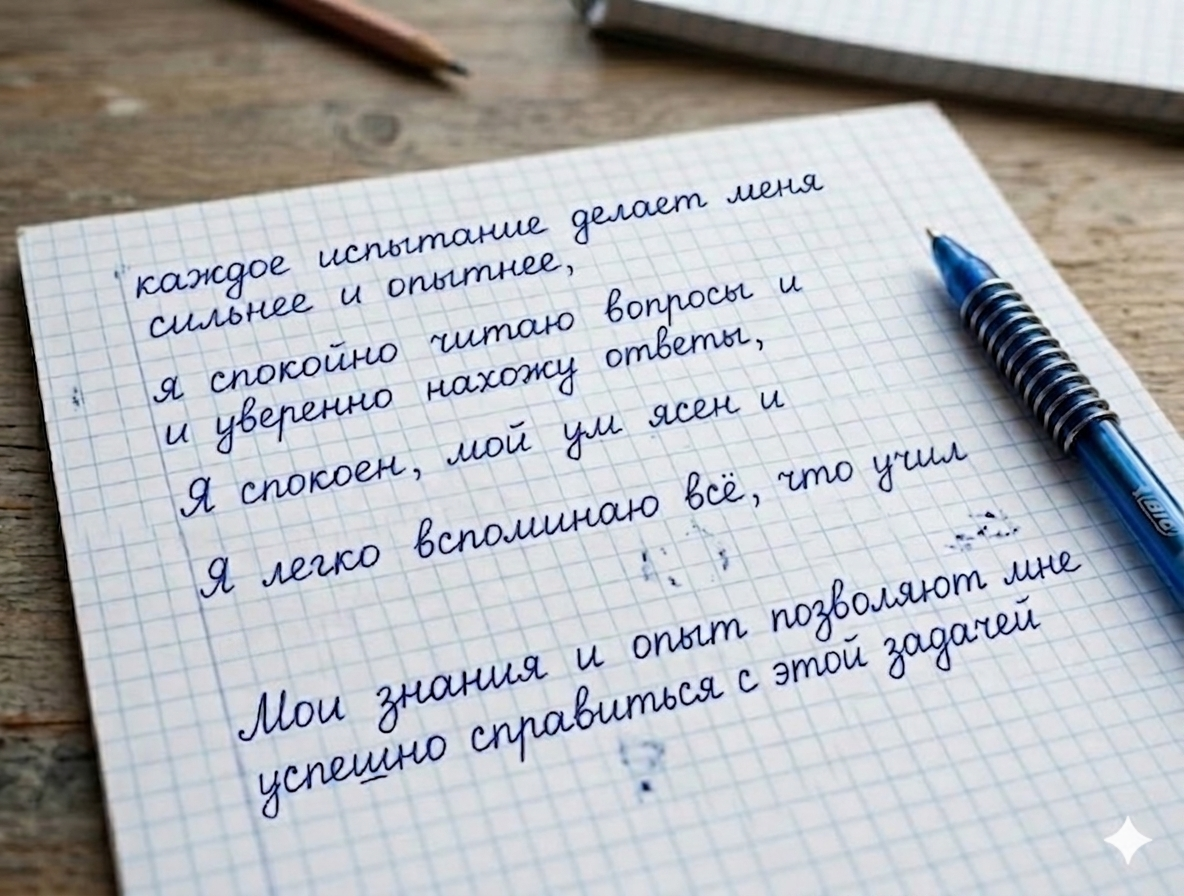 каждое испытание делает меня
сильнее и опытнее,
я спокойно читаю вопросы и
и уверенно нахожу ответы,
Я спокоен, мой ум ясен и
Я легко вспоминаю всё, что учил
Мои знания и опыт позволяют мне
успешно справиться с этой задачей